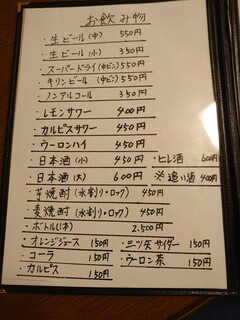 お飲み物
・生ビール(中) 550円
・生ビール(小) 350円
・スーパードライ(中ビン)550円
・キリンビール(中ビン)550円
・ノンアルコール 350円
・レモンサワー 400円
・カルピスサワー 450円
・ウーロンハイ 450円
・日本酒(小) 450円 ・ヒレ酒 600円
・日本酒(大) 600円 ※追い酒 400円
・芋焼酎(水割り・ロック) 450円
・麦焼酎(水割り・ロック) 450円
・ボトル(1本) 2,500円
・オレンジジュース 150円 ・三ツ矢サイダー 150円
・コーラ 150円 ・ウーロン茶 150円
・カルピス 150円